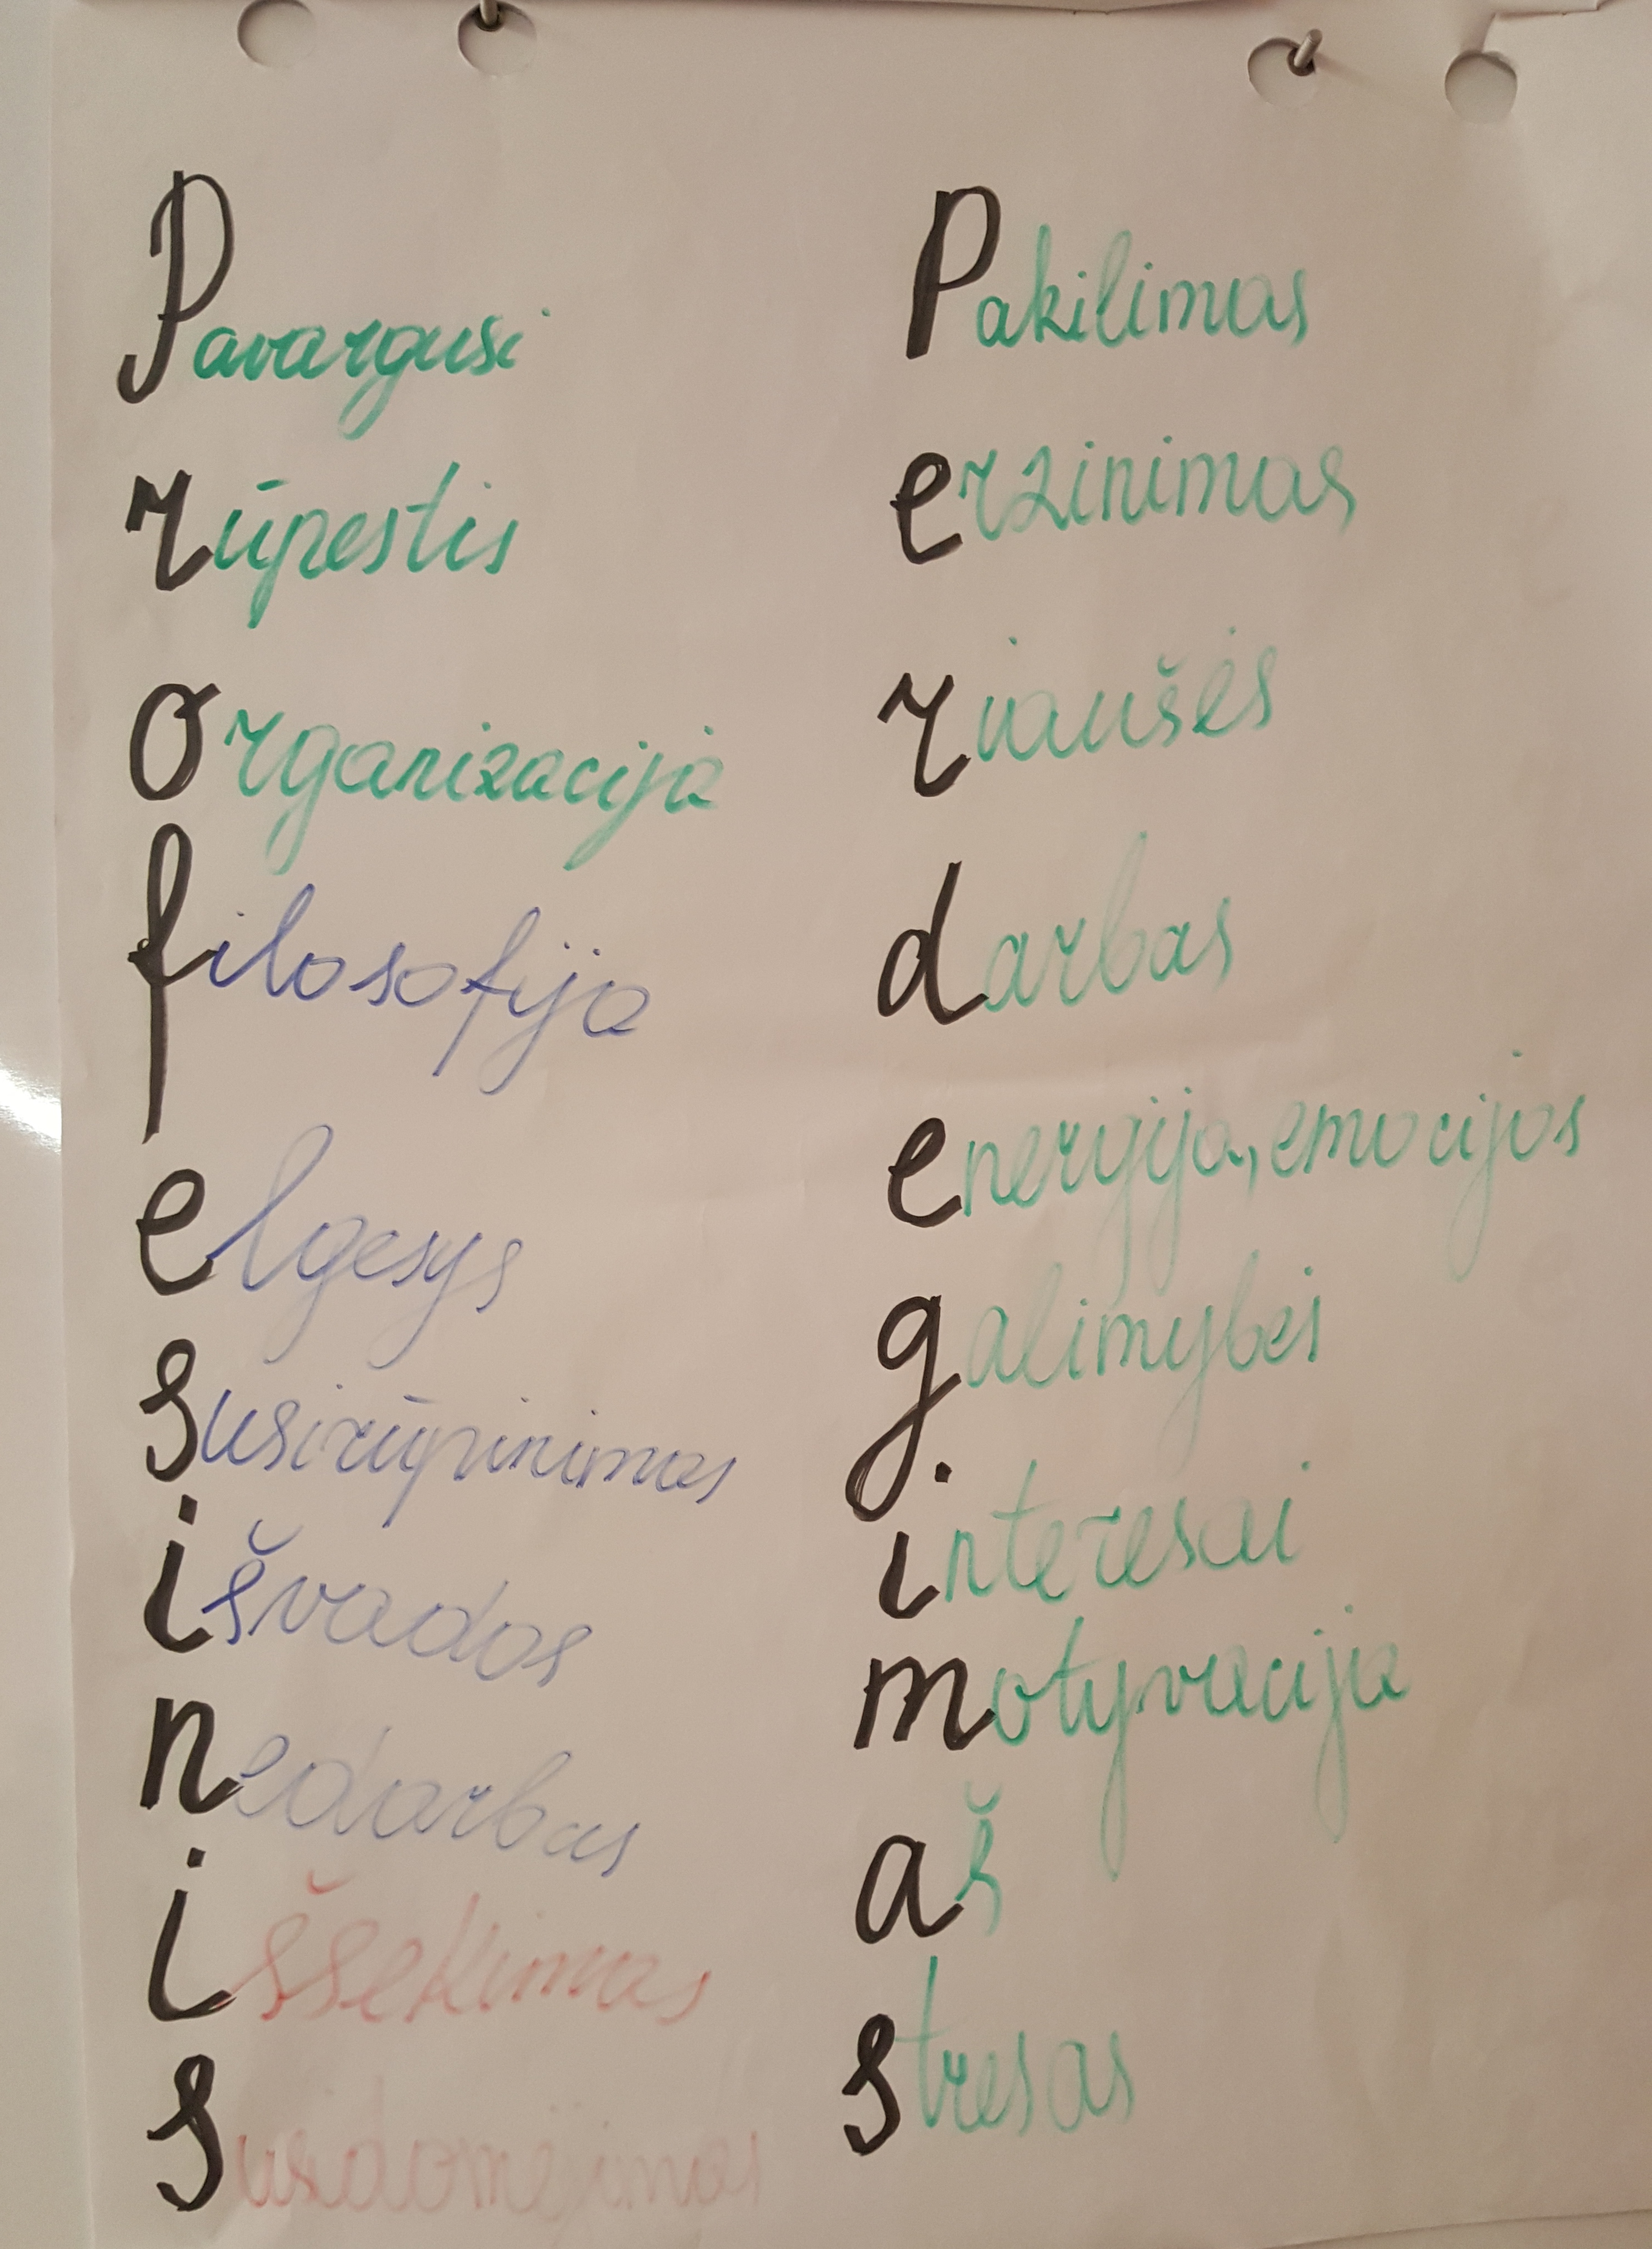 Pavargusi
rūpestis
organizacija
filosofija
elgesys
susirūpinimas
išvados
nedarbas
išsekimas
susidomėjimas
Pakilimas
erzinimas
riaušės
darbas
energija, emocijos
galimybės
interesai
motyvacija
aš
stresas